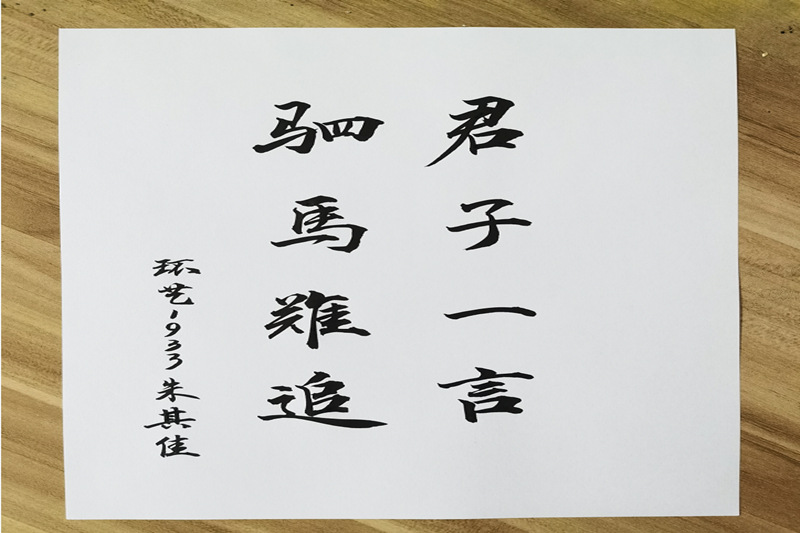 君子一言
驷馬難追
环艺1933朱其佳